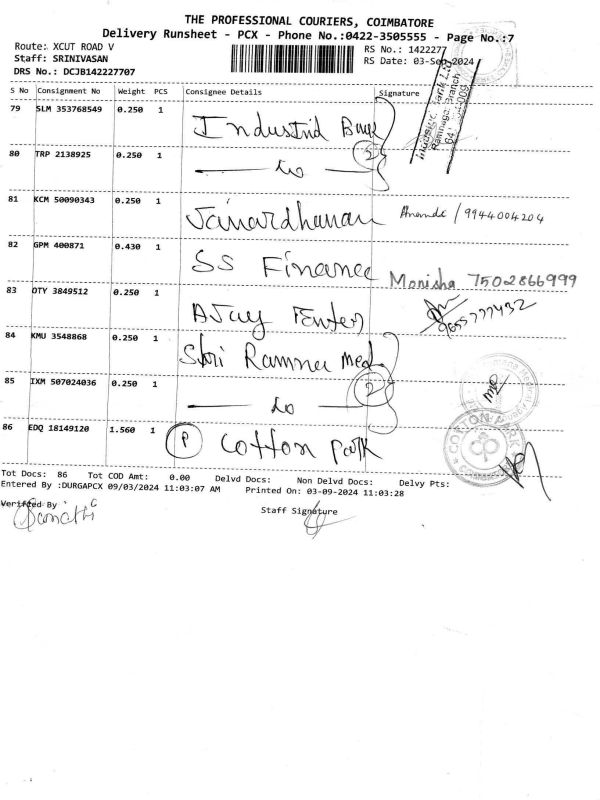 THE PROFESSIONAL COURIERS, COIMBATORE
Delivery Runsheet - PCX - Phone No.:0422-3505555 - Page No.:7
Route: XCUT ROAD V
RS No.: 1422277
Staff: SRINIVASAN
RS Date: 03-Sep-2024
DRS No.: DCJB142227707
S No Consignment No Weight PCS Consignee Details Signature
79 SLM 353768549 0.250 1 Industrid Bank
80 TRP 2138925 0.250 1 — do — 2
81 KCM 50090343 0.250 1 Janardhanan Anandi / 9944004204
82 GPM 400871 0.430 1 SS Finance Monisha 7502866999
83 OTY 3849512 0.250 1 AJay Enter 9655777432
84 KMU 3548868 0.250 1 Shri Ramna Med
85 IXM 507024036 0.250 1 — do — 2
86 EDQ 18149120 1.560 1 P Cotton Park
COTTON PARK
Tot Docs: 86 Tot COD Amt: 0.00 Delvd Docs: Non Delvd Docs: Delvy Pts:
Entered By :DURGAPCX 09/03/2024 11:03:07 AM Printed On: 03-09-2024 11:03:28
Verified By
Staff Signature